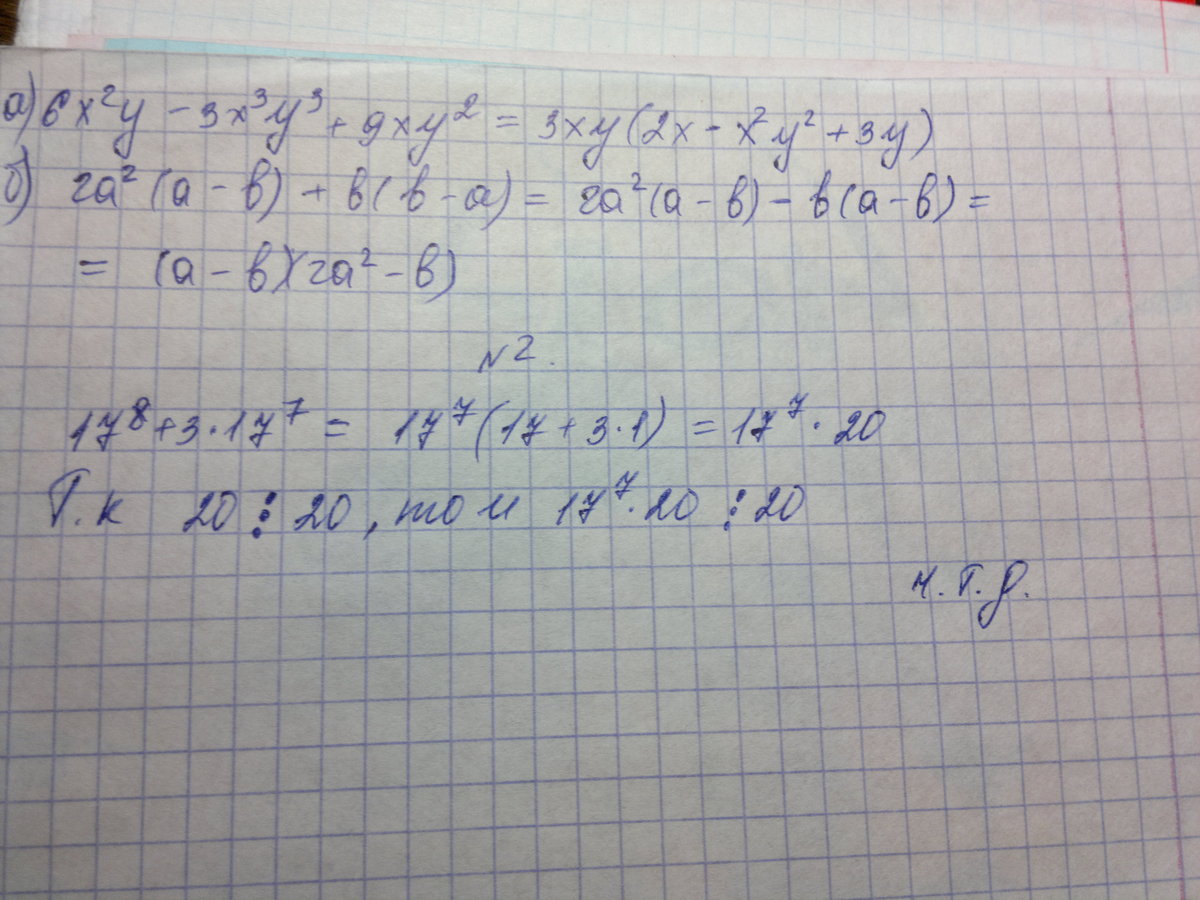 а) 6x²y - 3x³y³ + 9xy² = 3xy(2x - x²y² + 3y)
б) 2a² (a - b) + b(b - a) = 2a²(a - b) - b(a - b) =
= (a - b)(2a² - b)
N 2.
17⁸ + 3 · 17⁷ = 17⁷(17 + 3 · 1) = 17⁷ · 20
Т.к 20 ⋮ 20, то и 17⁷ · 20 ⋮ 20
ч.т.д.